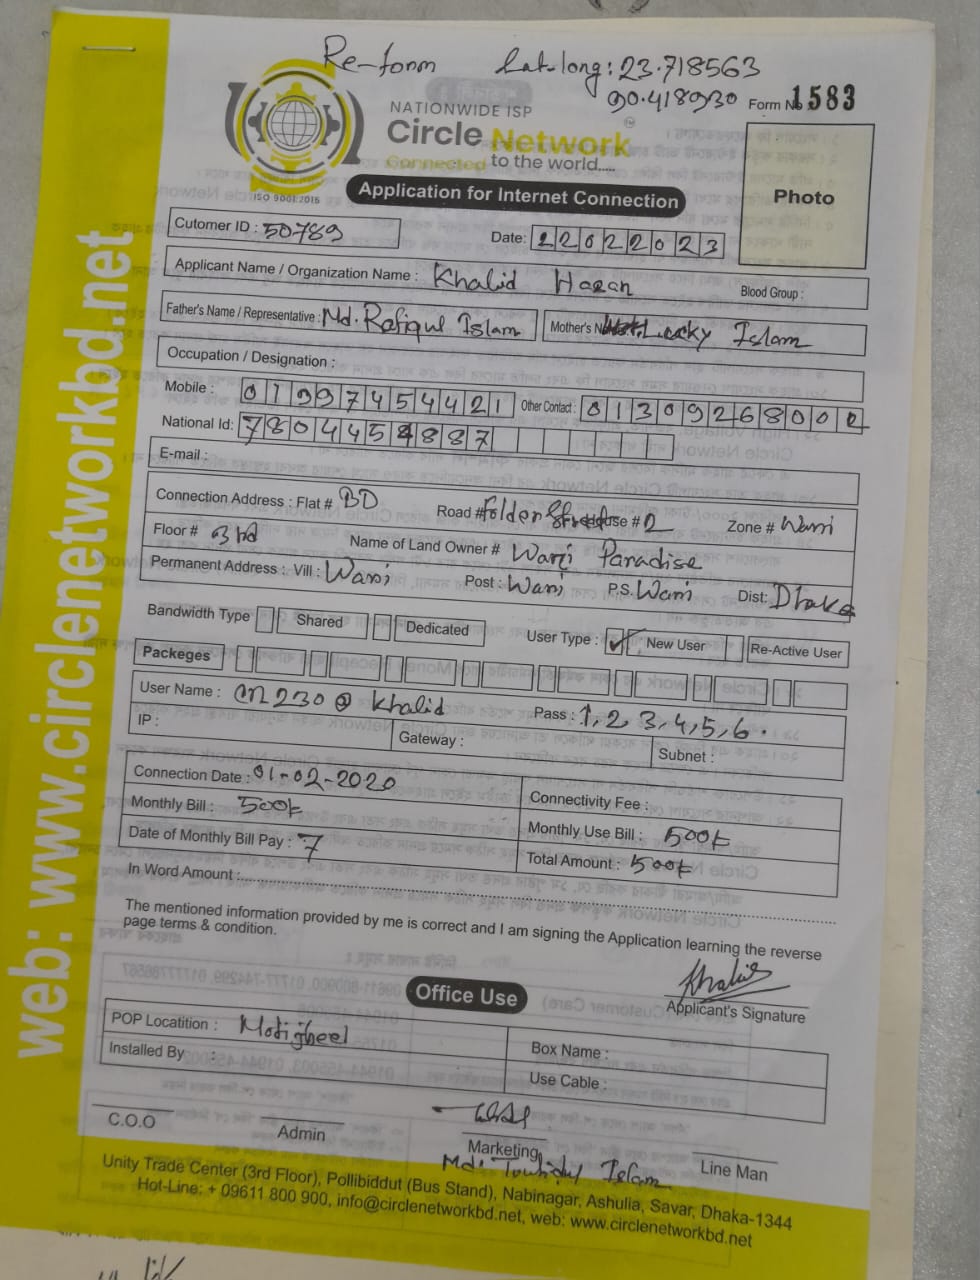 Re-form Lat-long: 23.718563
90.418930 Form No 1583
NATIONWIDE ISP
Circle Network
Connected to the world.....
ISO 9001:2015
Application for Internet Connection
Photo
Cutomer ID : 50789
Date: 22022023
Applicant Name / Organization Name : Khalid Hasan
Blood Group :
Father's Name / Representative : Md. Rafiqul Islam
Mother's Lucky Islam
Occupation / Designation :
Mobile : 01997454421 Other Contact : 01309268002
National Id: 7804454887
E-mail :
Connection Address : Flat # BD Road # Folder Street use # 2 Zone # Wari
Floor # 3rd Name of Land Owner # Wari Paradise
Permanent Address : Vill : Wari Post : Wari P.S. Wari Dist: Dhaka
Bandwidth Type Shared Dedicated User Type : ✓ New User Re-Active User
Packeges
User Name : cn230@khalid Pass : 1,2,3,4,5,6.
IP : Gateway : Subnet :
Connection Date : 01-02-2020 Connectivity Fee :
Monthly Bill : 500t Monthly Use Bill : 500t
Date of Monthly Bill Pay : 7 Total Amount : 500t
In Word Amount :
The mentioned information provided by me is correct and I am signing the Application learning the reverse
page terms & condition.
Khalid
Applicant's Signature
Office Use
POP Locatition : Motijheel Box Name :
Installed By : Use Cable :
C.O.O Admin Marketing Line Man
Md. Touhidul Islam
Unity Trade Center (3rd Floor), Pollibiddut (Bus Stand), Nabinagar, Ashulia, Savar, Dhaka-1344
Hot-Line: + 09611 800 900, info@circlenetworkbd.net, web: www.circlenetworkbd.net
web: www.circlenetworkbd.net